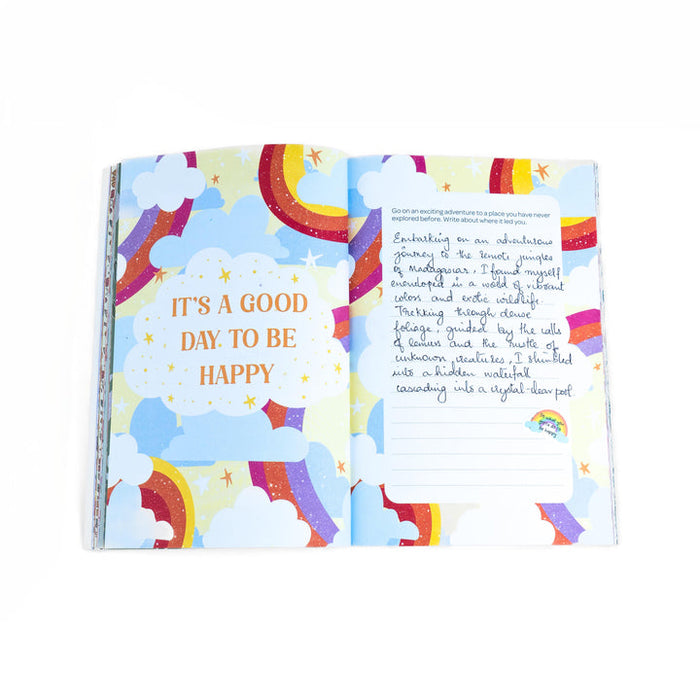 IT'S A GOOD
DAY TO BE
HAPPY
Go on an exciting adventure to a place you have never
explored before. Write about where it led you.
Embarking on an adventurous
journey to the remote jungles
of Madagascar, I found myself
enveloped in a world of vibrant
colors and exotic wildlife.
Trekking through dense
foliage, guided by the calls
of lemurs and the rustle of
unknown creatures, I stumbled
into a hidden waterfall
cascading into a crystal-clear pool
be happy